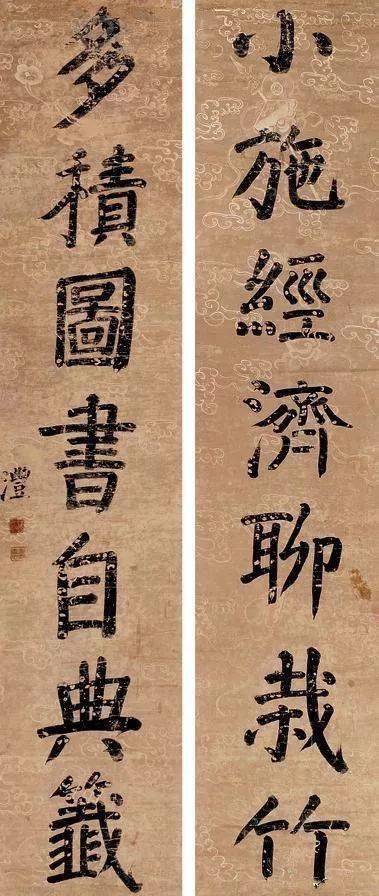 小施經濟聊栽竹
多積圖書自典籤
灃